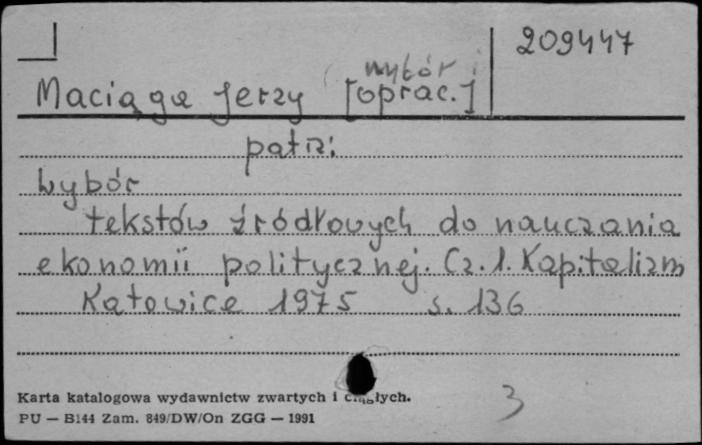 209447
wybór i
Maciąga Jerzy [oprac.]
patrz:
Wybór
tekstów źródłowych do nauczania
ekonomii politycznej. Cz. 1. Kapitalizm
Katowice 1975 s. 136
Karta katalogowa wydawnictw zwartych i ciągłych.
PU — B144 Zam. 849/DW/On ZGG — 1991
3